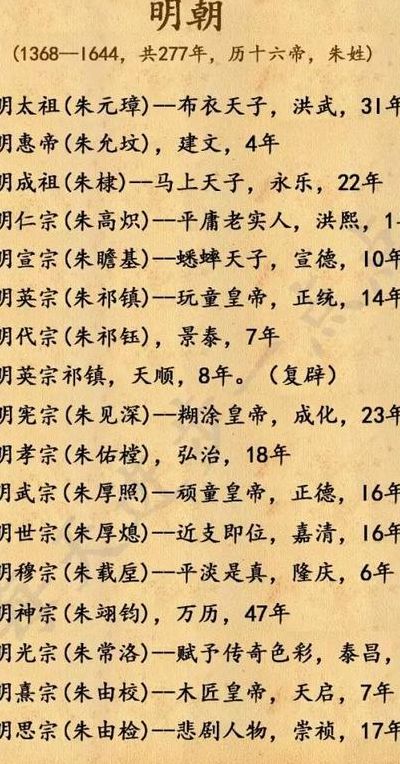 明朝
(1368—1644，共277年，历十六帝，朱姓)
明太祖(朱元璋)——布衣天子，洪武，31年
明惠帝(朱允炆)，建文，4年
明成祖(朱棣)——马上天子，永乐，22年
明仁宗(朱高炽)——平庸老实人，洪熙，1
明宣宗(朱瞻基)——蟋蟀天子，宣德，10年
明英宗(朱祁镇)——玩童皇帝，正统，14年
明代宗(朱祁钰)，景泰，7年
明英宗祁镇，天顺，8年。（复辟）
明宪宗(朱见深)——糊涂皇帝，成化，23年
明孝宗(朱佑樘)，弘治，18年
明武宗(朱厚照)——顽童皇帝，正德，16年
明世宗(朱厚熄)——近支即位，嘉清，16年
明穆宗(朱载垕)——平淡是真，隆庆，6年
明神宗(朱翊钧)，万历，47年
明光宗(朱常洛)——赋予传奇色彩，泰昌，
明熹宗(朱由校)——木匠皇帝，天启，7年
明思宗(朱由检)——悲剧人物，崇祯，17年